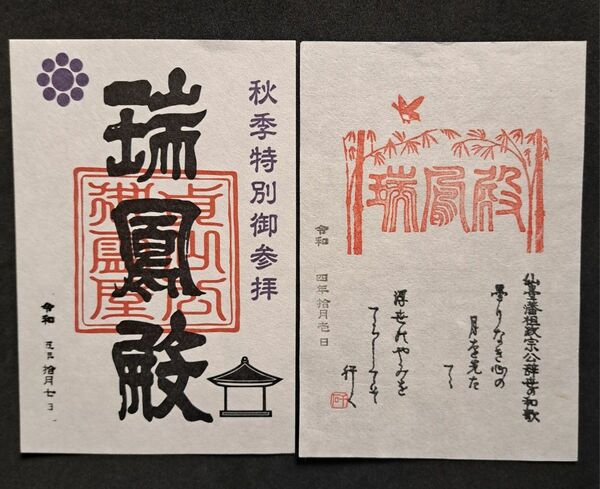 秋季特別御参拝
瑞鳳殿
貞山公
御霊屋
令和 拾月七日
瑞鳳殿
仙臺藩祖政宗公辞世の和歌
曇りなき心の
月を先た
てゝ
浮世のやみを
てらしてそ
行く
令和 四年拾月壱日